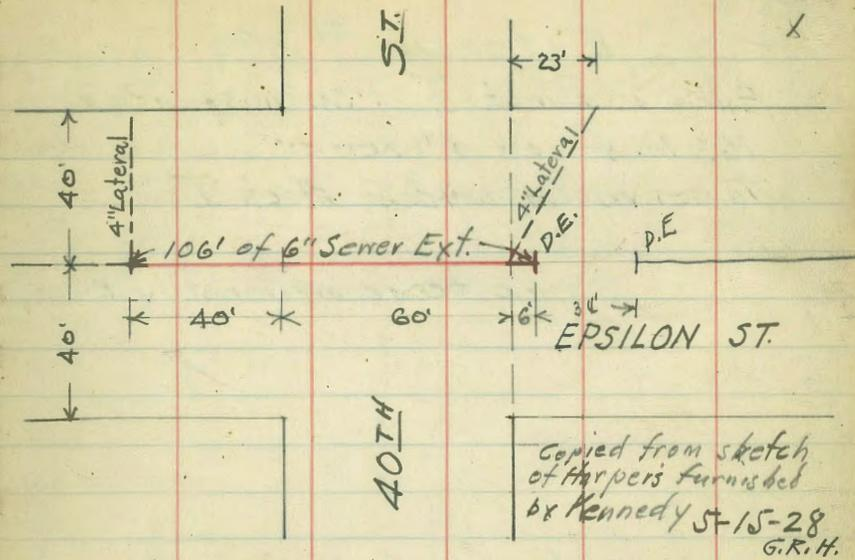 X
ST.
23'
40'
4" Lateral
4" Lateral
D.E.
D.E
106' of 6" Sewer Ext.
40'
60'
6'
40'
EPSILON ST.
40TH
Copied from sketch
of Harpers furnished
by Kennedy 5-15-28
G.R.H.